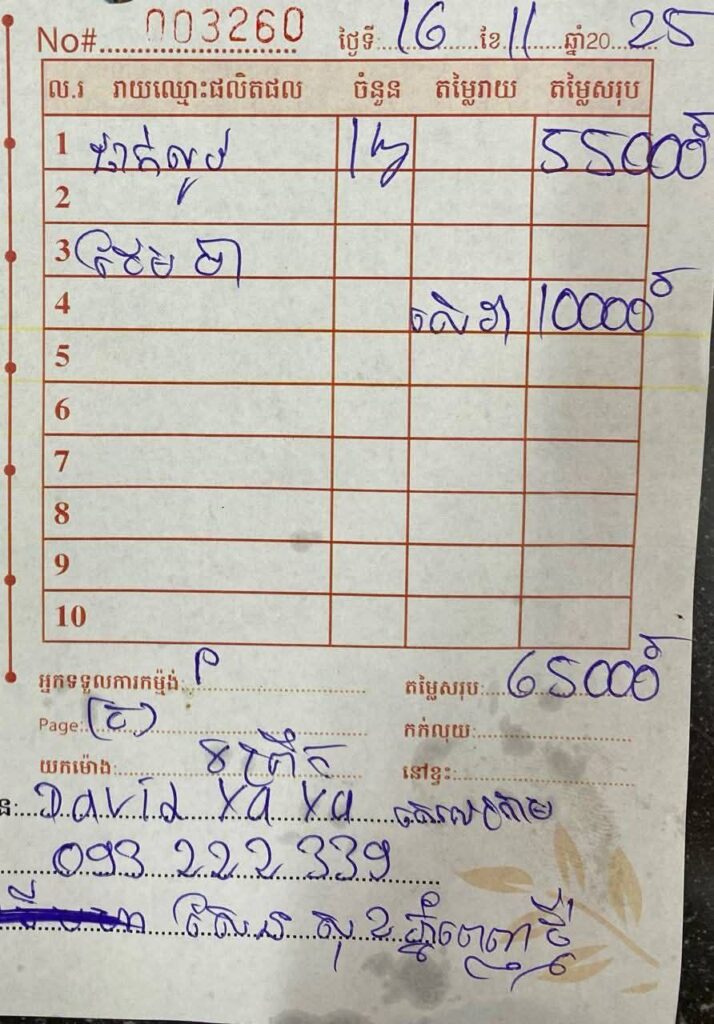 No# 003260 ថ្ងៃទី 16 ខែ 11 ឆ្នាំ20 25
ល.រ រាយឈ្មោះផលិតផល ចំនួន តម្លៃរាយ តម្លៃសរុប
1 1 55000៛
2
3 ថែម
4 សេវា 10000៛
5
6
7
8
9
10
អ្នកទទួលការកម្ម៉ង់: P តម្លៃសរុប: 65000៛
Page: កក់លុយ:
យកម៉ោង: 8 ព្រឹក នៅខ្វះ:
David Ya Ya
093 222 339
សែន សុខ ភ្នំពេញថ្មី